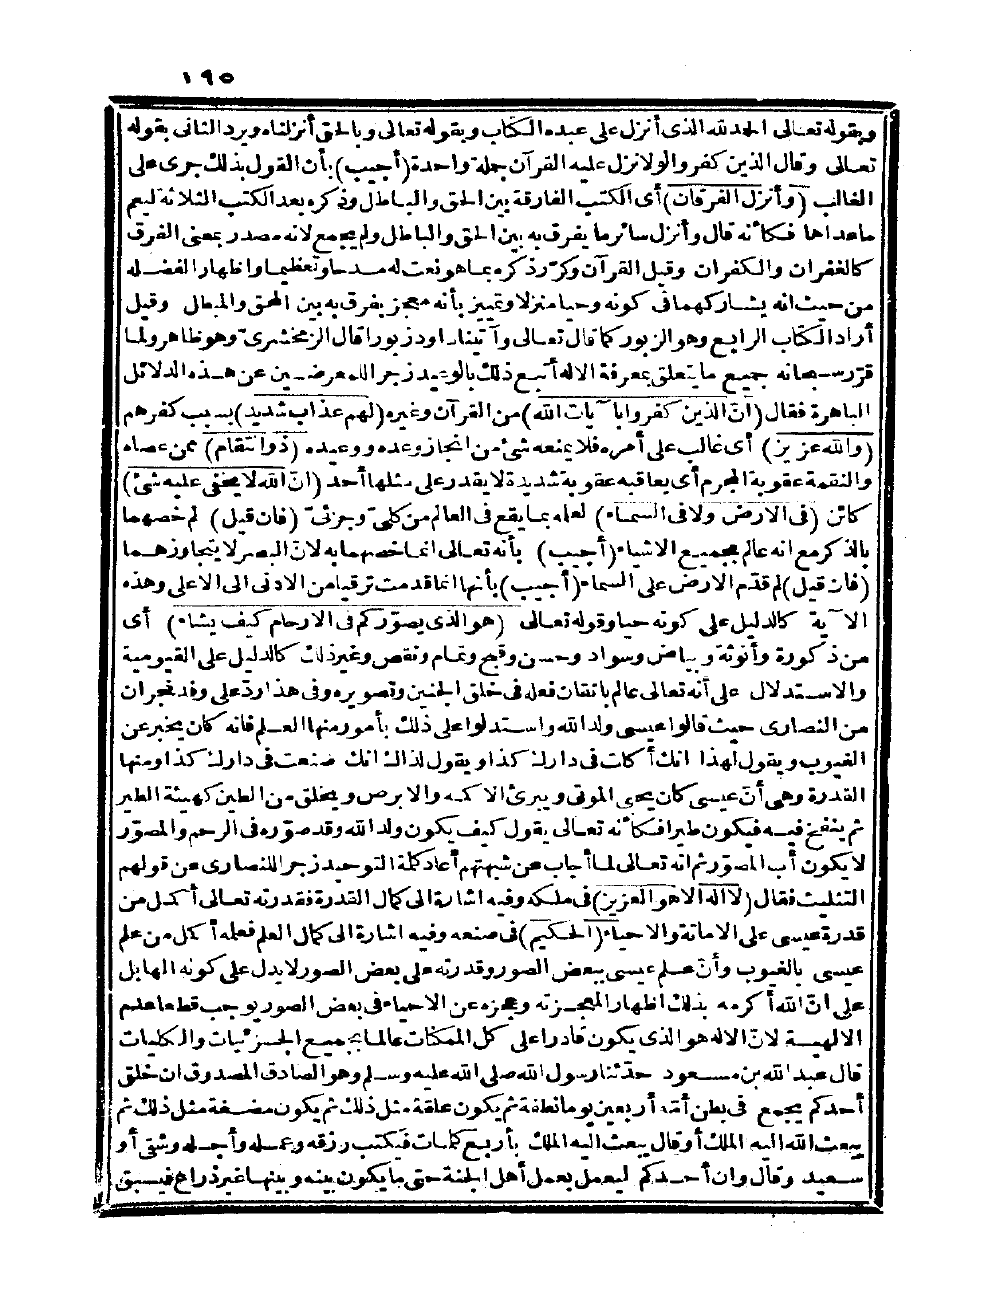 ١٩٥
وبقوله تعالى الحمد لله الذى أنزل على عبده الكتاب وبقوله تعالى وبالحق أنزلناه ويرد الثانى بقوله
تعالى وقال الذين كفروا لولا نزل عليه القرآن جملة واحدة (أجيب) بأن القول بذلك جرى على
الغالب (وأنزل الفرقان) أى الكتب الفارقة بين الحق والباطل وذكره بعد الكتب الثلاثة ليعم
ماعداها فكأنه قال وأنزل سائر ما يفرق به بين الحق والباطل ولم يجمع لانه مصدر بمعنى الفرق
كالغفران والكفران وقيل القرآن وكرّر ذكره بما هو نعت له مدحا وتعظيما واظهارا لفضله
من حيث انه يشاركهما فى كونه وحيا منزلا وتميز بأنه معجز يفرق به بين المحق والمبطل وقيل
أراد الكتاب الرابع وهو الزبور كما قال تعالى وآتينا داود زبورا قال الزمخشرىّ وهو ظاهر ولما
قرّر سبحانه جميع ما يتعلق بمعرفة الاله أتبع ذلك بالوعيد زجرا للمعرضين عن هذه الدلائل
الباهرة فقال (انّ الذين كفروا بآيات الله) من القرآن وغيره (لهم عذاب شديد) بسبب كفرهم
(والله عزيز) أى غالب على أمره فلا يمنعه شئ من انجاز وعده ووعيده (ذو انتقام) ممن عصاه
والنقمة عقوبة المجرم أى يعاقبه عقوبة شديدة لا يقدر على مثلها أحد (انّ الله لا يخفى عليه شئ)
كائن (فى الارض ولا فى السماء) لعلمه بما يقع فى العالم من كلىّ وجزئىّ (فان قيل) لم خصهما
بالذكر مع انه عالم بجميع الاشياء (أجيب) بأنه تعالى انما خصهما به لانّ البصر لا يتجاوزهما
(فان قيل) لم قدّم الارض على السماء (أجيب) بأنها انما قدمت ترقيا من الادنى الى الاعلى وهذه
الآية كالدليل على كونه حيا وقوله تعالى (هو الذى يصوّركم فى الارحام كيف يشاء) أى
من ذكورة وأنوثة وبياض وسواد وحسن وقبح وتمام ونقص وغير ذلك كالدليل على القيومية
والاستدلال على أنه تعالى عالم باتقان فعله فى خلق الجنين وتصويره وفى هذا ردّ على وفد نجران
من النصارى حيث قالوا عيسى ولد الله واستدلوا على ذلك بأمور منها العلم فانه كان يخبر عن
الغيوب ويقول لهذا انك أكلت فى دارك كذا ويقول لذاك انك صنعت فى دارك كذا ومنها
القدرة وهى أنّ عيسى كان يحيى الموتى ويبرئ الاكمه والابرص ويخلق من الطين كهيئة الطير
ثم ينفخ فيه فيكون طيرا فكأنه تعالى يقول كيف يكون ولد الله وقد صوّره فى الرحم والمصوّر
لا يكون أب المصوّر ثم انه تعالى لما أجاب عن شبهتهم أعاد كلمة التوحيد زجرا للنصارى عن قولهم
التثليث فقال (لا اله الا هو العزيز) فى ملكه وفيه اشارة الى كمال القدرة فقدرته تعالى أكمل من
قدرة عيسى على الاماتة والاحياء (الحكيم) فى صنعه وفيه اشارة الى كمال العلم فعلمه أكمل من علم
عيسى بالغيوب وأنّ علم عيسى ببعض الصور وقدرته على بعض الصور لا يدل على كونه الها بل
على انّ الله أكرمه بذلك اظهارا لمعجزته وعجزه عن الاحياء فى بعض الصور يوجب قطعا عدم
الالهية لانّ الاله هو الذى يكون قادرا على كل الممكنات عالما بجميع الجزئيات والكليات
قال عبد الله بن مسعود حدّثنا رسول الله صلى الله عليه وسلم وهو الصادق المصدوق ان خلق
أحدكم يجمع فى بطن أمّه أربعين يوما نطفة ثم يكون علقة مثل ذلك ثم يكون مضغة مثل ذلك ثم
يبعث الله اليه الملك أو قال يبعث اليه الملك بأربع كلمات فيكتب رزقه وعمله وأجله وشقى أو
سعيد وقال وان أحدكم ليعمل بعمل أهل الجنة حتى ما يكون بينه وبينها غير ذراع فيسبق